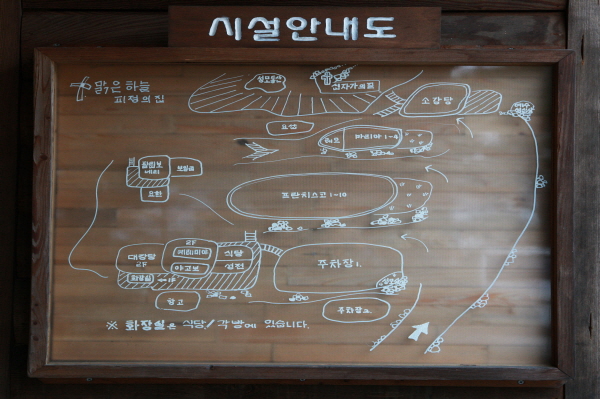 시설안내도
맑은하늘
피정의집
십자가의 길
소강당
요셉
마리아 1-4
프란치스코 1-10
요한
대강당
2F
2F
식당
성전
야고보
화장실
창고
주차장1.
주차장2.
※ 화장실은 식당/각방에 있습니다.